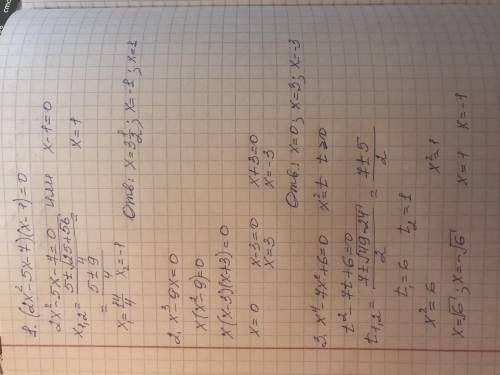 1. (2x²-5x-7)(x-1)=0
2x²-5x-7=0 или x-1=0
x₁,₂= 5±√25+56 / 4 = x=1
5±9 / 4
x₁=14/4 x₂=-1 Отв: x=3 1/2; x=-1; x=1
2. x³-9x=0
x(x²-9)=0
x(x-3)(x+3)=0
x=0 x-3=0 x+3=0
x=3 x=-3
Отв: x=0; x=3; x=-3
3. x⁴-7x²+6=0 x²=t t≥0
t²-7t+6=0
t₁,₂= 7±√49-24 / 2 = 7±5 / 2
t₁=6 t₂=1
x²=6 x²=1
x=√6; x=-√6 x=1 x=-1